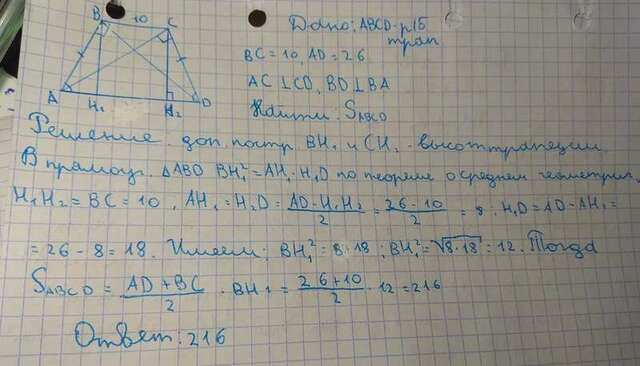 B 10 C
A H₁ H₂ D
Дано: ABCD - р/б
трап
BC = 10, AD = 26
AC ⊥ CD, BD ⊥ BA
Найти: S ABCD
Решение: доп. постр. BH₁ и CH₂ - высот трапеции
В прямоуг. △ABD BH₁² = AH₁ · H₁D по теореме о среднем геометрич.
H₁H₂ = BC = 10, AH₁ = H₂D = AD - H₁H₂ / 2 = 26 - 10 / 2 = 8; H₁D = AD - AH₁ =
= 26 - 8 = 18. Имеем: BH₁² = 8 · 18; BH₁² = √8·18 = 12. Тогда
S ABCD = AD + BC / 2 · BH₁ = 26 + 10 / 2 · 12 = 216
Ответ: 216